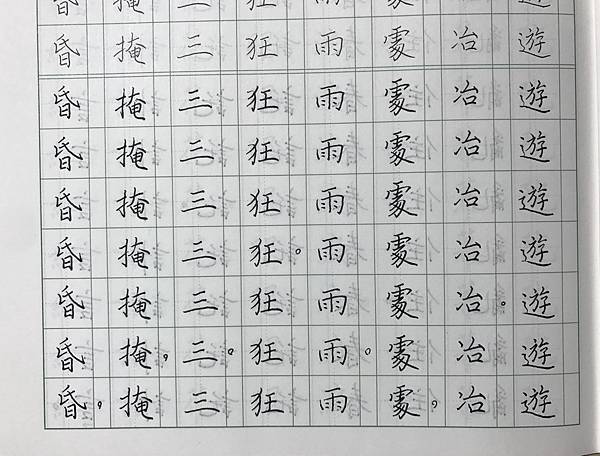 遊遊遊遊遊遊遊遊遊
冶冶冶冶冶冶冶。冶冶
處處處處處處處處處，
雨雨雨雨雨雨雨雨。雨
狂狂狂狂狂狂。狂狂狂
三三三三三三三三。三
掩掩掩掩掩掩掩掩，掩
昏昏昏昏昏昏昏昏昏，